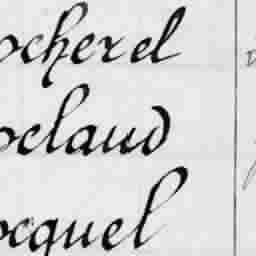 ocherel
oclaud
ocquel